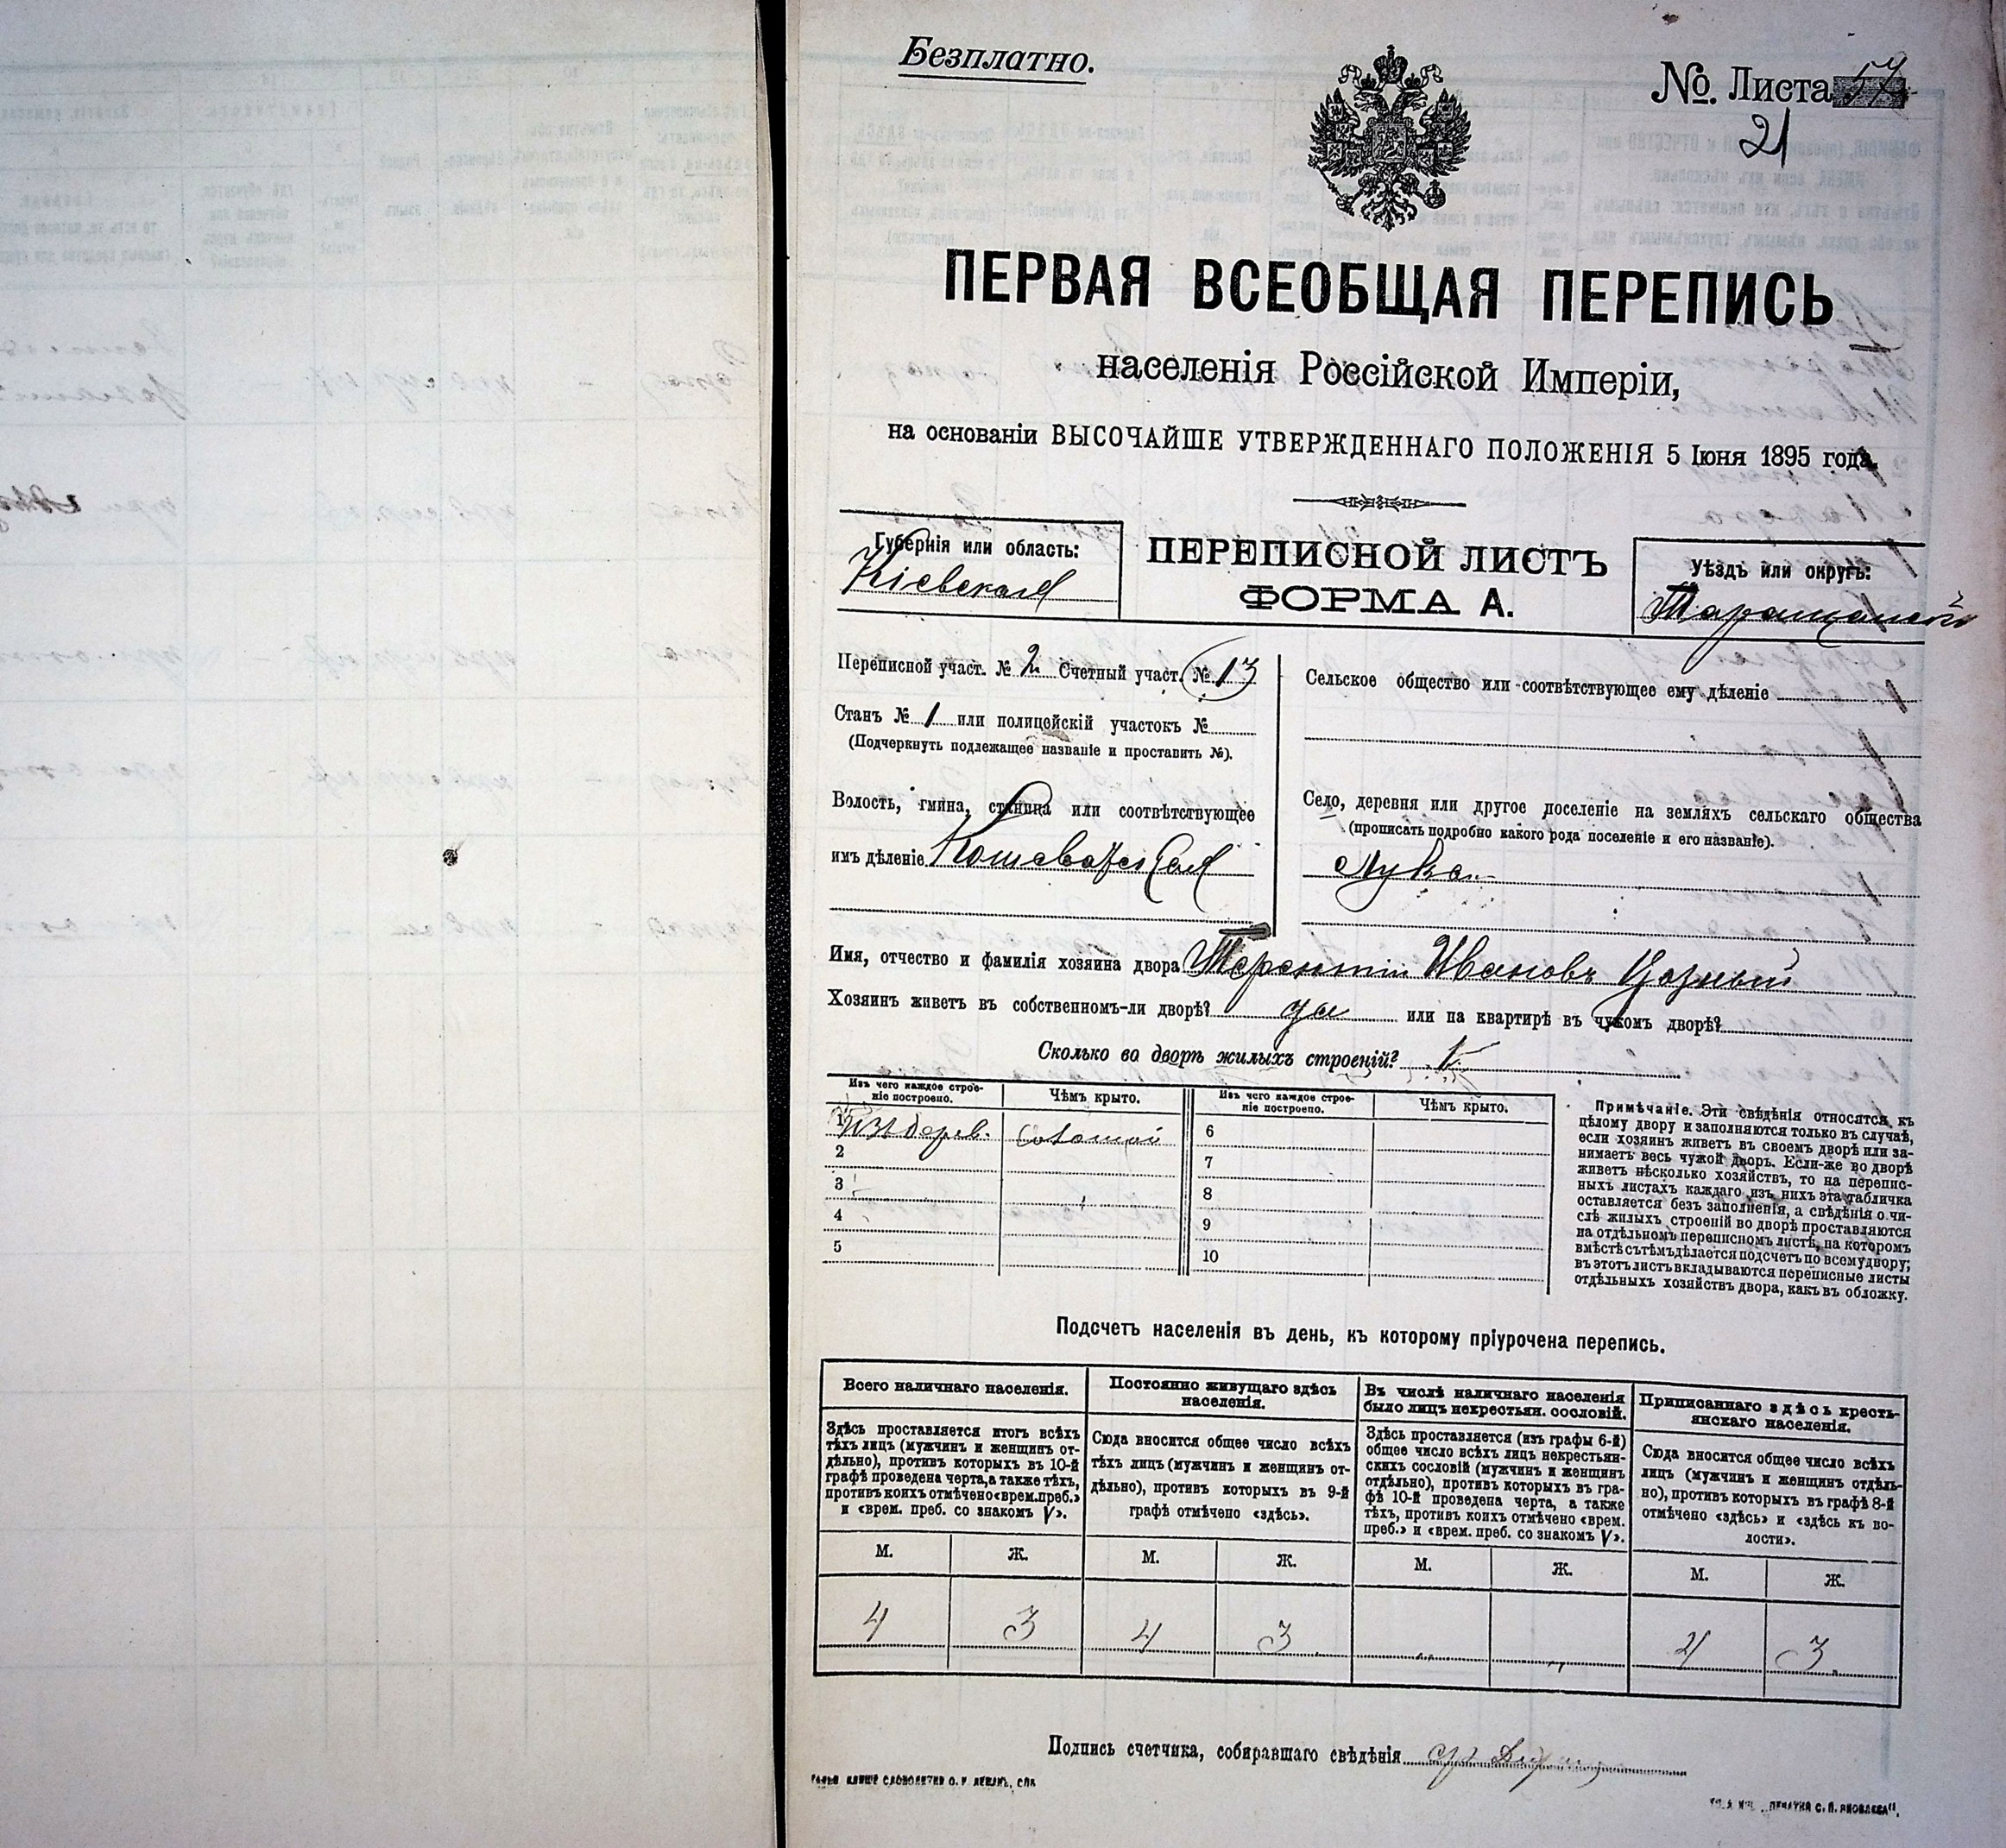 Безплатно.
№. Листа 57
21
ПЕРВАЯ ВСЕОБЩАЯ ПЕРЕПИСЬ
населенія Россійской Имперіи,
на основаніи ВЫСОЧАЙШЕ УТВЕРЖДЕННАГО ПОЛОЖЕНІЯ 5 Іюня 1895 года.
Губернія или область:
Кіевская
ПЕРЕПИСНОЙ ЛИСТЪ
ФОРМА А.
Уѣздъ или округъ:
Таращанскій
Переписной участ. № 2 Счетный участ. № 13
Станъ № 1 или полицейскій участокъ №
(Подчеркнуть подлежащее названіе и проставить №).
Волость, гмина, станица или соотвѣтствующее
имъ дѣленіе Кошеватская
Сельское общество или соотвѣтствующее ему дѣленіе
Село, деревня или другое поселеніе на земляхъ сельскаго общества
(прописать подробно какого рода поселеніе и его названіе).
Лука
Имя, отчество и фамилія хозяина двора Терентій Ивановъ
Хозяинъ живетъ въ собственномъ-ли дворѣ? да или на квартирѣ въ чужомъ дворѣ?
Сколько во дворѣ жилыхъ строеній? 1
Изъ чего каждое строе-
ніе построено.
Чѣмъ крыто.
Изъ чего каждое строе-
ніе построено.
Чѣмъ крыто.
1 Изъ дерев. Соломой
2
3
4
5
6
7
8
9
10
Примѣчаніе. Эти свѣдѣнія относятся къ
цѣлому двору и заполняются только въ случаѣ,
если хозяинъ живетъ въ своемъ дворѣ или за-
нимаетъ весь чужой дворъ. Если-же во дворѣ
живетъ нѣсколько хозяйствъ, то на перепис-
ныхъ листахъ каждаго изъ нихъ эта табличка
оставляется безъ заполненія, а свѣдѣнія о чи-
слѣ жилыхъ строеній во дворѣ проставляются
на отдѣльномъ переписномъ листѣ, на которомъ
вмѣстѣ съ тѣмъ дѣлается подсчетъ по всему двору;
въ этотъ листъ вкладываются переписные листы
отдѣльныхъ хозяйствъ двора, какъ въ обложку.
Подсчетъ населенія въ день, къ которому пріурочена перепись.
Всего наличнаго населенія.
Здѣсь проставляется итогъ всѣхъ
тѣхъ лицъ (мужчинъ и женщинъ от-
дѣльно), противъ которыхъ въ 10-й
графѣ проведена черта, а также тѣхъ,
противъ коихъ отмѣчено «врем. преб.»
и «врем. преб. со знакомъ V».
М. Ж.
4 3
Постоянно живущаго здѣсь
населенія.
Сюда вносится общее число всѣхъ
тѣхъ лицъ (мужчинъ и женщинъ от-
дѣльно), противъ которыхъ въ 9-й
графѣ отмѣчено «здѣсь».
М. Ж.
4 3
Въ числѣ наличнаго населенія
было лицъ некрестьян. сословій.
Здѣсь проставляется (изъ графы 6-й)
общее число всѣхъ лицъ некрестьян-
скихъ сословій (мужчинъ и женщинъ
отдѣльно), противъ которыхъ въ гра-
фѣ 10-й проведена черта, а также
тѣхъ, противъ коихъ отмѣчено «врем.
преб.» и «врем. преб. со знакомъ V».
М. Ж.
Приписаннаго здѣсь кресть-
янскаго населенія.
Сюда вносится общее число всѣхъ
лицъ (мужчинъ и женщинъ отдѣль-
но), противъ которыхъ въ графѣ 8-й
отмѣчено «здѣсь» и «здѣсь къ во-
лости».
М. Ж.
4 3
Подпись счетчика, собиравшаго свѣдѣнія